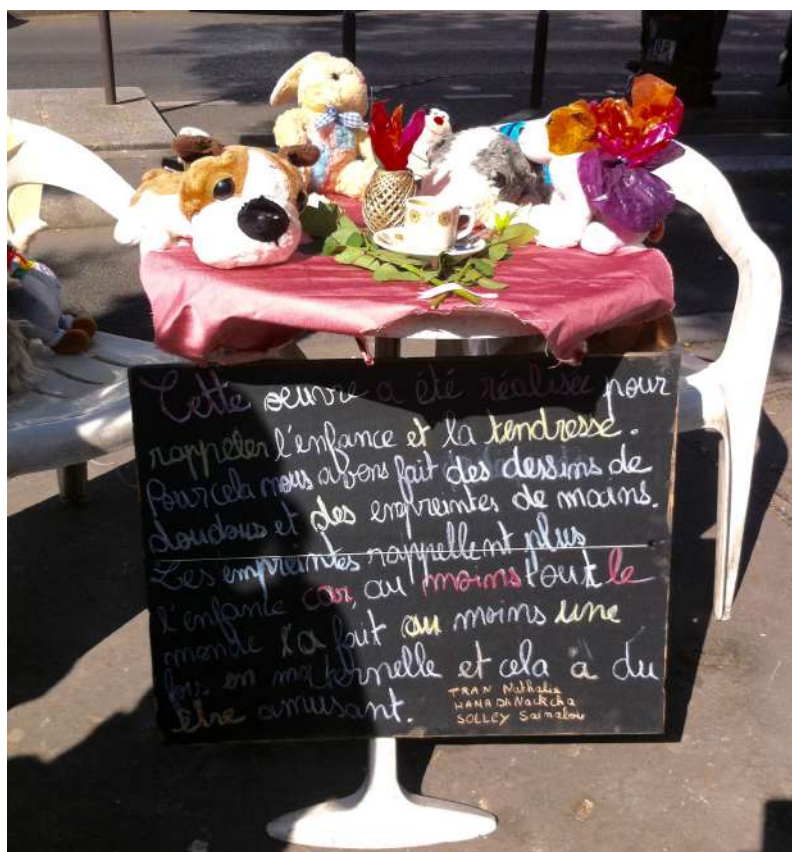 Cette oeuvre a été réalisée pour
rappeler l'enfance et la tendresse.
Pour cela nous avons fait des dessins de
doudous et des empreintes de mains.
Les empreintes rappellent plus
l'enfance car, au moins tout le
monde l'a fait au moins une
fois en maternelle et cela a du
être amusant.
TRAN Nathalie
SOLLEY